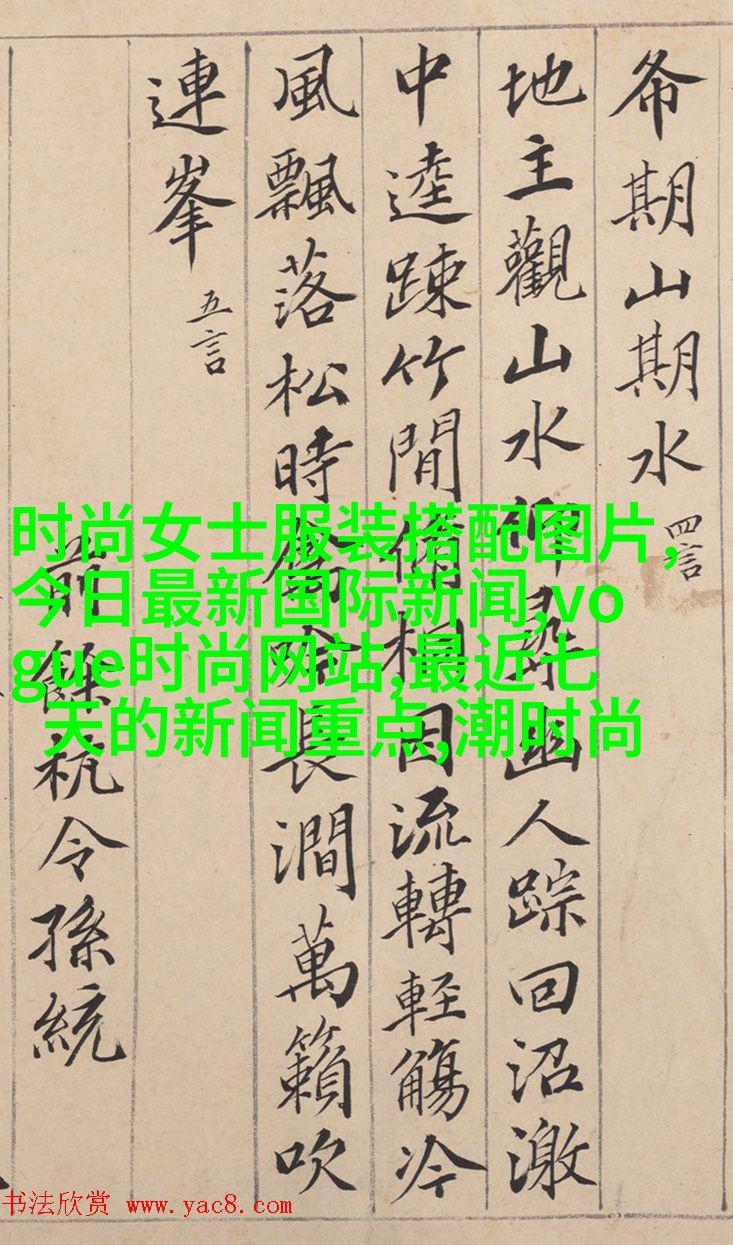 希期山期水 四言
地主觀山水仰尋幽人踪回沼激
中逵踈竹間脩桐因流轉輕觴冷
風飄落松時禽吟長澗萬籟吹
連峯 五言
前餘杭令孫統
时尚女士服装搭配图片,
今日最新国际新闻,vo
gue时尚网站,最近七
天的新闻重点,潮时尚
书法欣赏 www.yac8.com